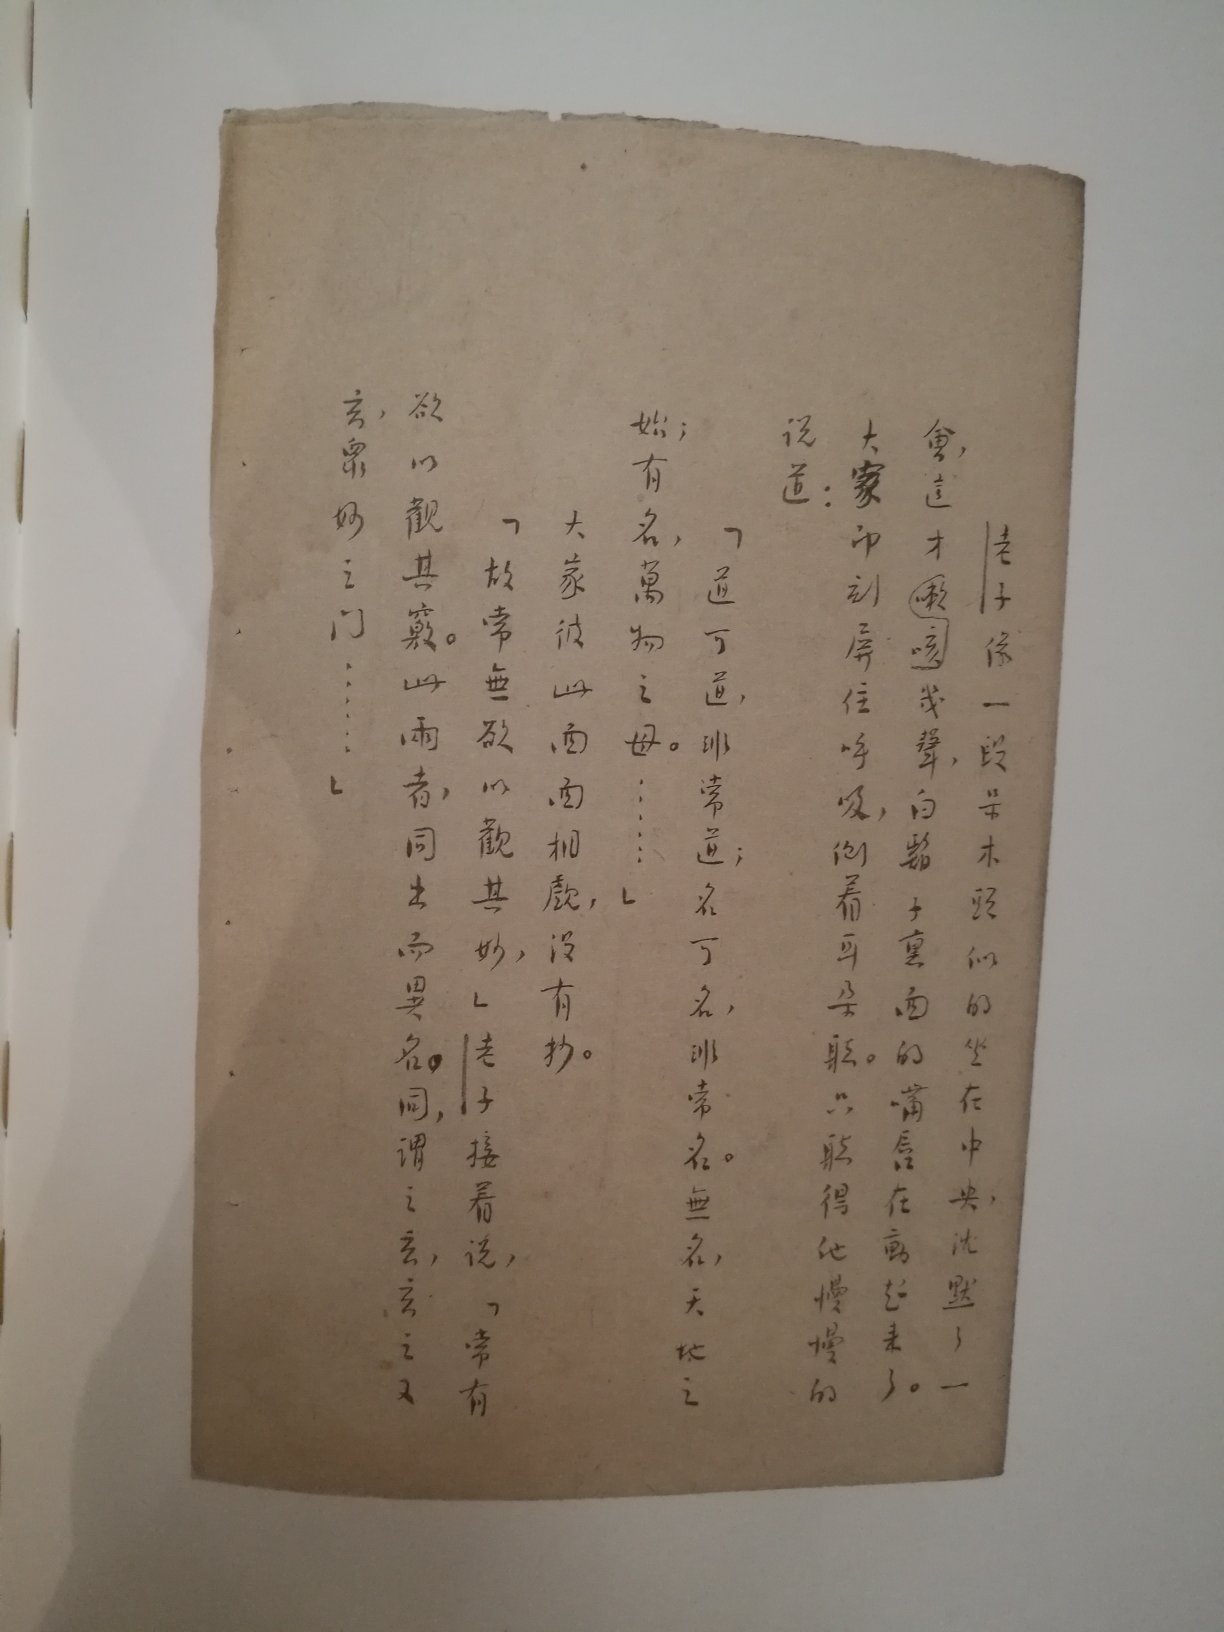 老子像一段呆木頭似的坐在中央，沈默了一
會，這才嗽咳幾聲，白鬍子裏面的嘴唇在動起来了。
大家即刻屏住呼吸，側着耳朵聽。只聽得他慢慢的
说道：
「道可道，非常道；名可名，非常名。無名，天地之
始；有名，萬物之母。……」
大家彼此面面相覷，没有抄。
「故常無欲以觀其妙，」老子接着说，「常有
欲以觀其竅。此兩者，同出而異名。同，謂之玄，玄之又
玄，衆妙之门……」